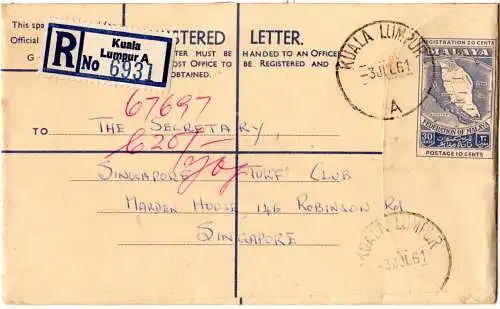 This spa
Official
G
REGISTERED LETTER.
LETTER MUST BE HANDED TO AN OFFICE
POST OFFICE TO BE REGISTERED AND
OBTAINED.
R Kuala
Lumpur A
No 6931
KUALA LUMPUR
3JUL61
A
REGISTRATION 20 CENTS
MALAYA
FEDERATION OF MALAYA
30
POSTAGE 10 CENTS
67697
620/-
TO THE SECRETARY,
SINGAPORE TURF CLUB
MARDEN HOUSE, 146 ROBINSON RD
SINGAPORE
KUALA LUMPUR
3JUL61